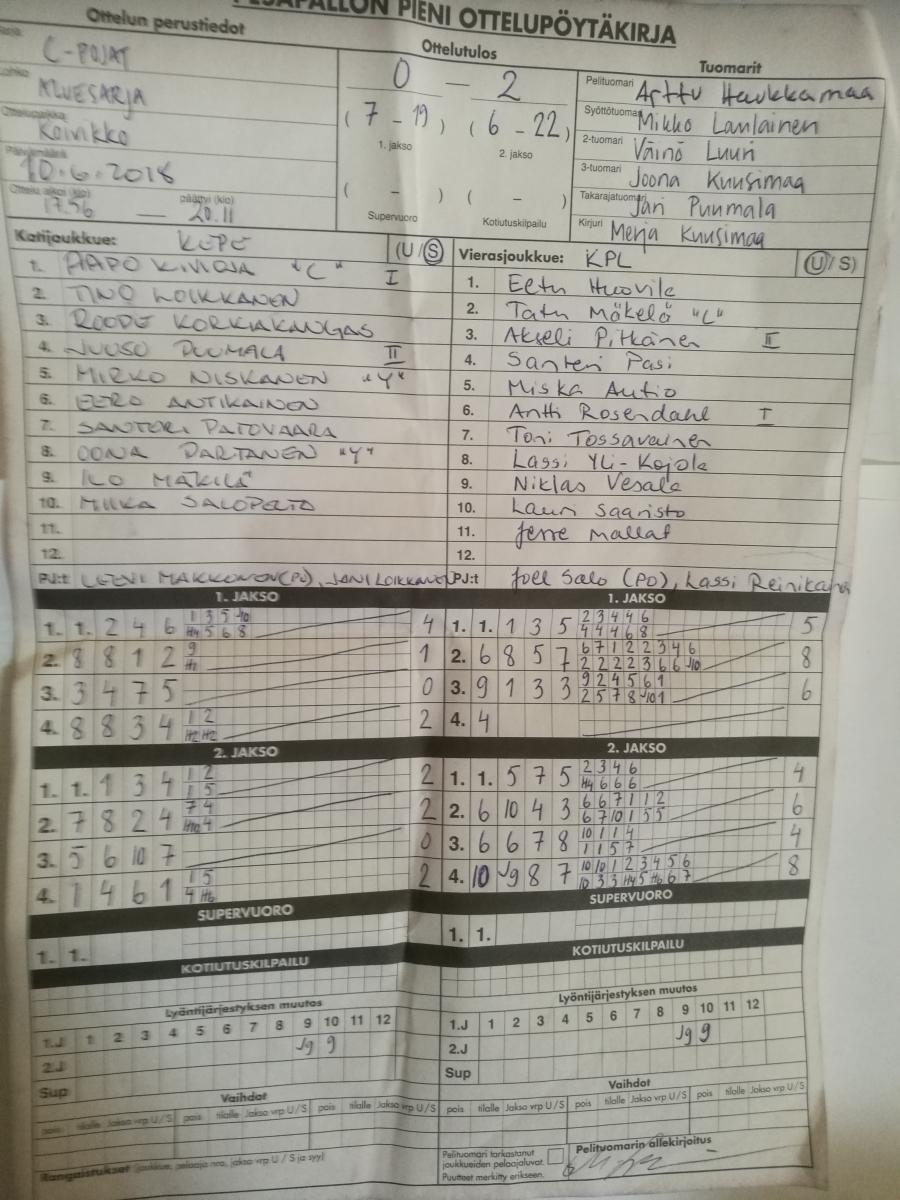 PIENI OTTELUPÖYTÄKIRJA
Ottelun perustiedot
C-POJAT
ALUESARJA
Koivikko
10.6.2018
Ottelu alkoi (klo) päättyi (klo)
17.56 — 20.11
Ottelutulos
0 — 2
(7 - 19) (6 - 22)
1. jakso 2. jakso
( - ) ( - )
Supervuoro Kotiutuskilpailu
Tuomarit
Pelituomari Arttu Haukkamaa
Syöttötuomari Mikko Laulainen
2-tuomari Väinö Luuri
3-tuomari Joona Kuusimaa
Takarajatuomari Jari Puumala
Kirjuri Merja Kuusimaa
Kotijoukkue: KOPE (U/S)
1. AAPO KIVIOJA "C" I
2. TINO LOIKKANEN
3. ROOPE KORKIAKANGAS
4. JUUSO PUUMALA II
5. MIRKO NISKANEN "Y"
6. EERO ANTIKAINEN
7. SANTERI PATOVAARA
8. OONA PARTANEN "Y"
9. ILO MÄKILÄ
10. MIIKA SALOPELTO
11.
12.
PJ:t LEEVI MAKKONEN (PJ), JANI LOIKKANEN
Vierasjoukkue: KPL (U/S)
1. Eetu Huovila
2. Tatu Mäkelä "C"
3. Akseli Pitkänen II
4. Santeri Pasi
5. Miska Autio
6. Antti Rosendahl I
7. Toni Tossavainen
8. Lassi Yli-Kojola
9. Niklas Vesala
10. Lauri Saaristo
11. Jerre Mallat
12.
PJ:t Joel Salo (PJ), Lassi Reinikainen
1. JAKSO
1. 1. 2 4 6 1 3 5 J10 4
H4 5 6 8
2. 8 8 1 2 9 1
H1
3. 3 4 7 5 0
4. 8 8 3 4 1 2 2
H2 H2
2. JAKSO
1. 1. 1 3 4 1 2 2
1 5
2. 7 8 2 4 7 4 2
H10 4
3. 5 6 10 7 0
4. 1 4 6 1 1 5 2
4 H6
SUPERVUORO
1. 1.
KOTIUTUSKILPAILU
1. JAKSO
1. 1. 1 3 5 2 3 4 4 6 5
4 4 4 6 8
2. 6 8 5 7 6 7 1 2 2 3 4 6 8
2 2 2 2 3 6 6 J10
3. 9 1 3 3 9 2 4 5 6 1 6
2 5 7 8 J10 1
4. 4
2. JAKSO
1. 1. 5 7 5 2 3 4 6 4
H4 6 6 6
2. 6 10 4 3 6 6 7 1 1 2 6
6 7 10 1 5 5
3. 6 6 7 8 10 1 1 4 4
1 1 5 7
4. 10 J9 8 7 10 10 1 2 3 4 5 6 8
10 3 3 H4 5 H6 6 7
SUPERVUORO
1. 1.
KOTIUTUSKILPAILU
Lyöntijärjestyksen muutos
1.J 1 2 3 4 5 6 7 8 9 10 11 12
J9 9
2.J
Sup
Vaihdot
pois tilalle Jakso vrp U/S pois tilalle Jakso vrp U/S pois tilalle Jakso vrp U/S
Rangaistukset (joukkue, pelaaja nro, jakso vrp U / S ja syy)
Lyöntijärjestyksen muutos
1.J 1 2 3 4 5 6 7 8 9 10 11 12
J9 9
2.J
Sup
Vaihdot
pois tilalle Jakso vrp U/S pois tilalle Jakso vrp U/S pois tilalle Jakso vrp U/S
Pelituomari tarkastanut
joukkueiden pelaajaluvat.
Puutteet merkitty erikseen.
Pelituomarin allekirjoitus